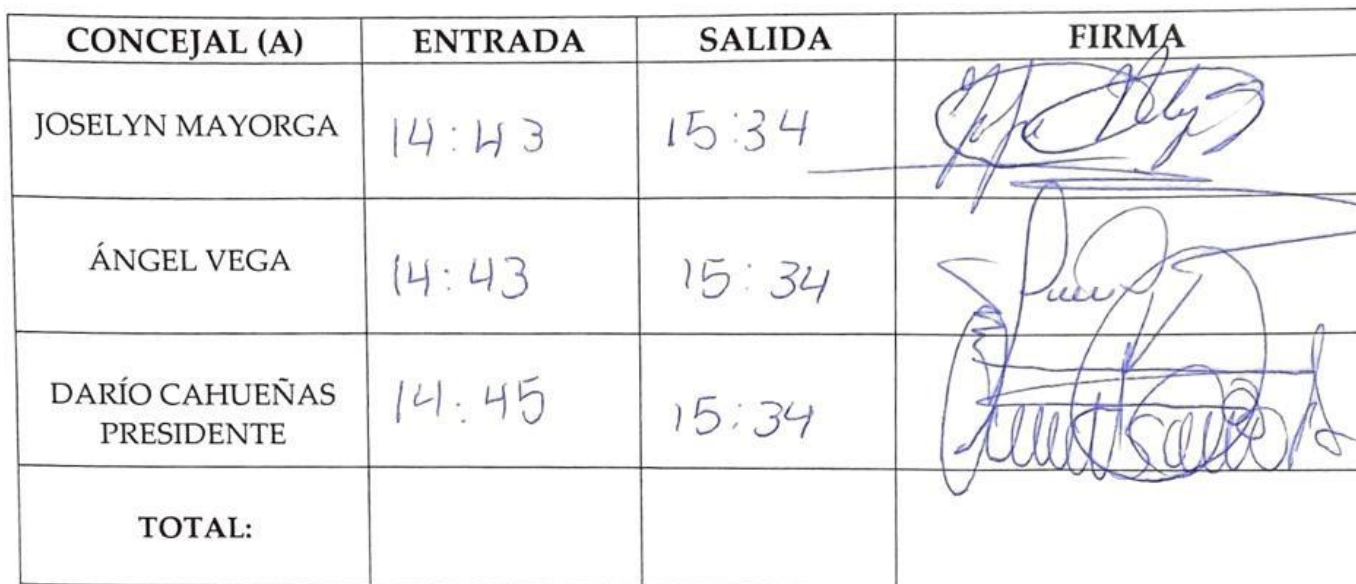 CONCEJAL (A) ENTRADA SALIDA FIRMA
JOSELYN MAYORGA 14:43 15:34
ÁNGEL VEGA 14:43 15:34
DARÍO CAHUEÑAS
PRESIDENTE 14:45 15:34
TOTAL: